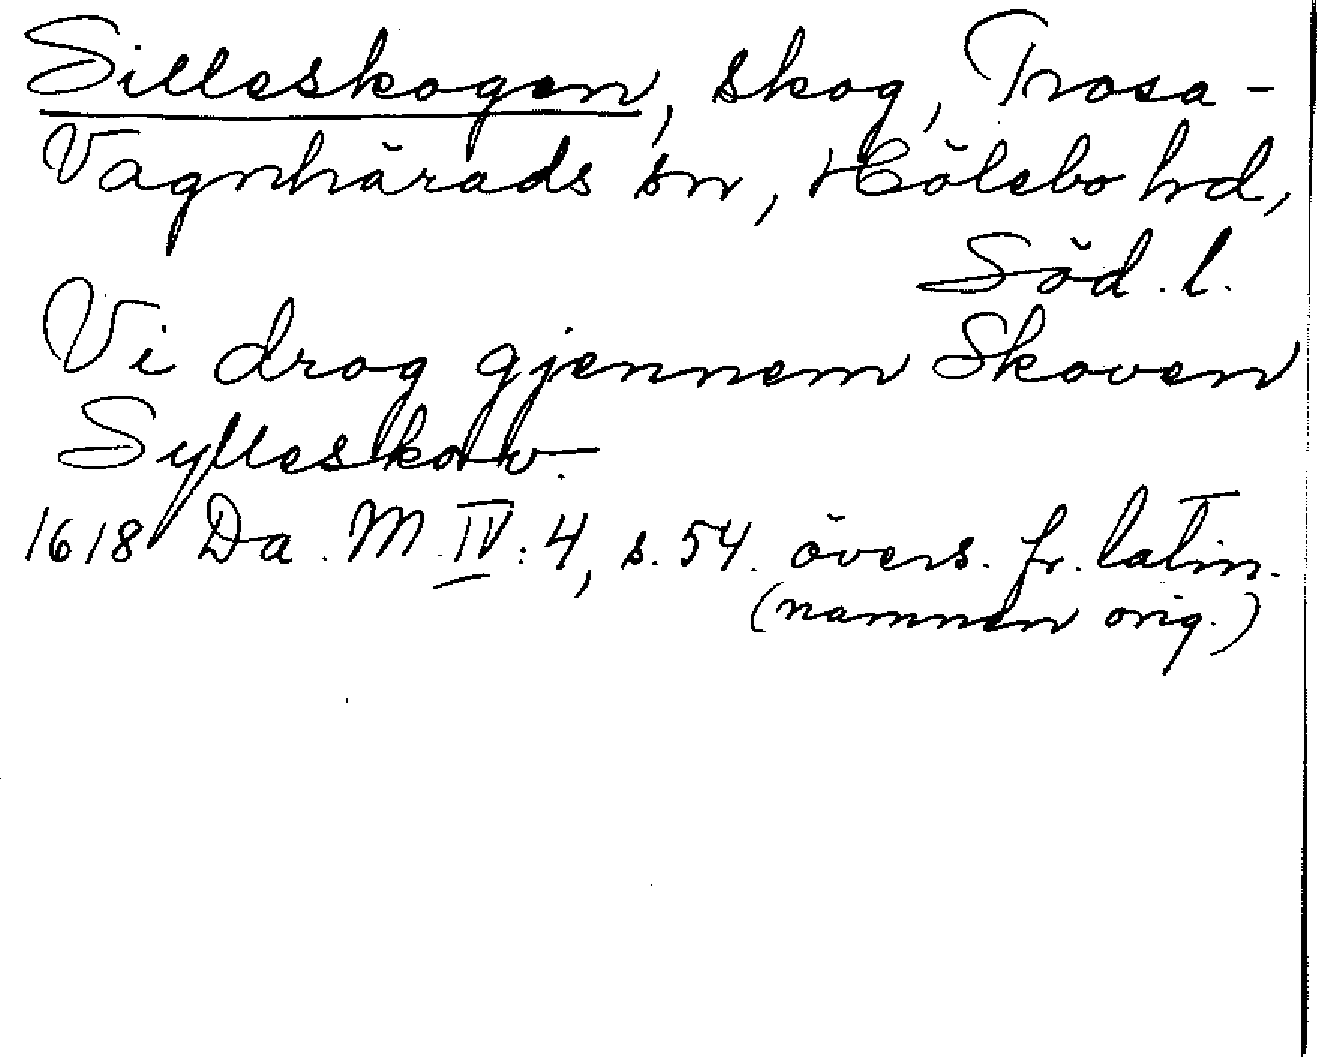 Silleskogen, skog, Trosa-
Vagnhärads sn, Hölebo hd,
Söd. l.
Vi drog gjennem Skoven
Sylleskow.
1618 Da. M. IV: 4, s. 54. övers. fr. latin.
(namnen orig.)